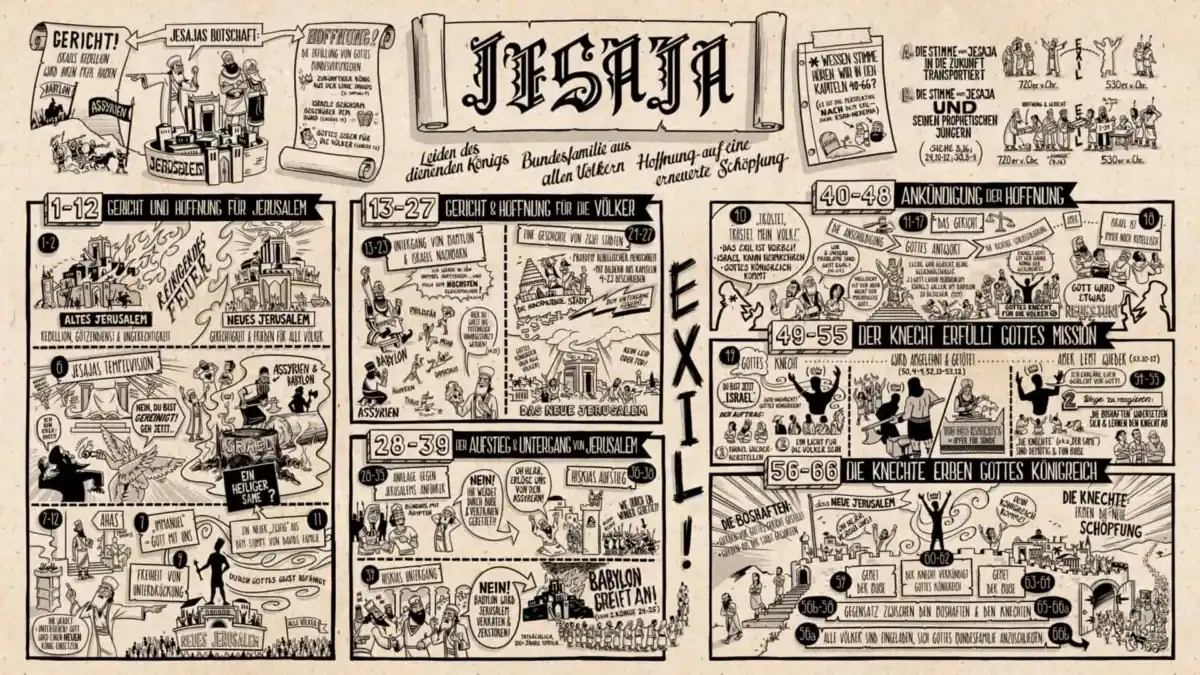 GERICHT!
ISRAELS REBELLION
WIRD IHREN PREIS HABEN
BABYLON
ASSYRIEN
JESAJAS BOTSCHAFT:
JERUSALEM
HOFFNUNG!
DIE ERFÜLLUNG VON GOTTES
BUNDESVERSPRECHEN
ZUKÜNFTIGER KÖNIG
AUS DER LINIE DAVIDS
ISRAELS GEHORSAM
GEGENÜBER DEM
BUND
GOTTES SEGEN FÜR
DIE VÖLKER
JESAJA
Leiden des
dienenden Königs
Bundesfamilie aus
allen Völkern
Hoffnung auf eine
erneuerte Schöpfung
* WESSEN STIMME
HÖREN WIR IN DEN
KAPITELN 40-66?
(ES IST DIE PERSPEKTIVE
NACH DEM EXIL
A. DIE STIMME VON JESAJA
IN DIE ZUKUNFT
TRANSPORTIERT
EXIL
720er v.Chr.
530er v.Chr.
B. DIE STIMME VON JESAJA
UND
SEINEN PROPHETISCHEN
JÜNGERN
(SIEHE 8,16;
29,10-12; 30,8-9)
HOFFNUNG & GERICHT
720er v.Chr.
530er v.Chr.
1-12 GERICHT UND HOFFNUNG FÜR JERUSALEM
1-2
REINIGENDES
FEUER
ALTES JERUSALEM
REBELLION, GÖTZENDIENST & UNGERECHTIGKEIT
NEUES JERUSALEM
GERECHTIGKEIT & FRIEDEN FÜR ALLE VÖLKER
6 JESAJAS TEMPELVISION
NEIN, DU BIST
GEREINIGT!
GEH JETZT...
ASSYRIEN &
BABYLON
ISRAEL
EIN
HEILIGER
SAME ?
7-12
AHAS
7 "IMMANUEL"
= GOTT MIT UNS
9
FREIHEIT VON
UNTERDRÜCKUNG
EIN NEUER "ZWEIG" AUS
DEM STUMPF VON DAVIDS FAMILIE
11
DURCH GOTTES GEIST BEFÄHIGT
IHR WERDET
UNTERGEHEN! GOTT
WIRD EINEN NEUEN
KÖNIG EINSETZEN.
NEUES JERUSALEM
ALLE VÖLKER
13-27 GERICHT & HOFFNUNG FÜR DIE VÖLKER
13-23 UNTERGANG VON BABYLON
& ISRAELS NACHBARN
PHILISTÄA
MOAB
DAMASKUS
ÄGYPTEN
BABYLON
ASSYRIEN
EINE GESCHICHTE VON ZWEI STÄDTEN 24-27
PROTOTYP REBELLISCHER MENSCHHEIT
MIT BILDERN AUS KAPITELN
13-23 BESCHRIEBEN
DIE HOCHMÜTIGE STADT
DEM UNTERGANG
GEWEIHT
KEIN LEID
ODER TOD!
DAS NEUE JERUSALEM
28-39 DER AUFSTIEG & UNTERGANG VON JERUSALEM
28-35 ANKLAGE GEGEN
JERUSALEMS ANFÜHRER
BÜNDNIS MIT
ÄGYPTEN
NEIN!
IHR WERDET
DURCH BUSSE
& VERTRAUEN
GERETTET!
OH HERR,
ERLÖSE UNS
VON DEN
ASSYRERN!
HISKIAS AUFSTIEG 36-38
39 HISKIAS UNTERGANG
NEIN!
BABYLON WIRD
JERUSALEM
VERRATEN &
ZERSTÖREN!
TATSÄCHLICH,
100+ JAHRE SPÄTER
BABYLON
GREIFT AN!
(SIEHE 2. KÖNIGE 24-25)
EXIL!
40-48 ANKÜNDIGUNG DER HOFFNUNG
40 "TRÖSTET,
TRÖSTET MEIN VOLK!"
• DAS EXIL IST VORBEI!
• ISRAEL KANN HEIMKEHREN
• GOTTES KÖNIGREICH
KOMMT
*
41-47 DAS GERICHT
DIE ANSCHULDIGUNG
GOTTES ANTWORT
GOTTES KNECHT
FÜR DIE VÖLKER
ABER...
ISRAEL IST
IMMER NOCH REBELLISCH
48
GOTT WIRD
ETWAS
NEUES TUN
49-55 DER KNECHT ERFÜLLT GOTTES MISSION
49 GOTTES KNECHT
DU BIST JETZT
ISRAEL
DER AUFTRAG:
1 ISRAEL WIEDER-
HERSTELLEN
2 EIN LICHT FÜR
DIE VÖLKER SEIN
WIRD ABGELEHNT & GETÖTET
(50,4-9, 52,13-53,12)
TOD DES KNECHTS
= OPFER FÜR SÜNDE
ABER LEBT WIEDER (53,10-12)
54-55
2 Wege zu reagieren:
DIE BOSHAFTEN WIDERSETZEN
SICH & LEHNEN DEN KNECHT AB
"DIE KNECHTE" (aka "DER SAME")
SIND DEMÜTIG & TUN BUSSE
56-66 DIE KNECHTE ERBEN GOTTES KÖNIGREICH
DIE BOSHAFTEN:
das NEUE JERUSALEM
DEIN
KÖNIGREICH
KOMME!
DIE KNECHTE:
ERBEN DIE NEUE
SCHÖPFUNG
60-62
59 GEBET
DER BUSSE
DER KNECHT VERKÜNDIGT
GOTTES KÖNIGREICH
GEBET
DER BUSSE 63-64
56b-58 GEGENSATZ ZWISCHEN DEN BOSHAFTEN & DEN KNECHTEN 65-66a
56a ALLE VÖLKER SIND EINGELADEN, SICH GOTTES BUNDESFAMILIE ANZUSCHLIESSEN 66b